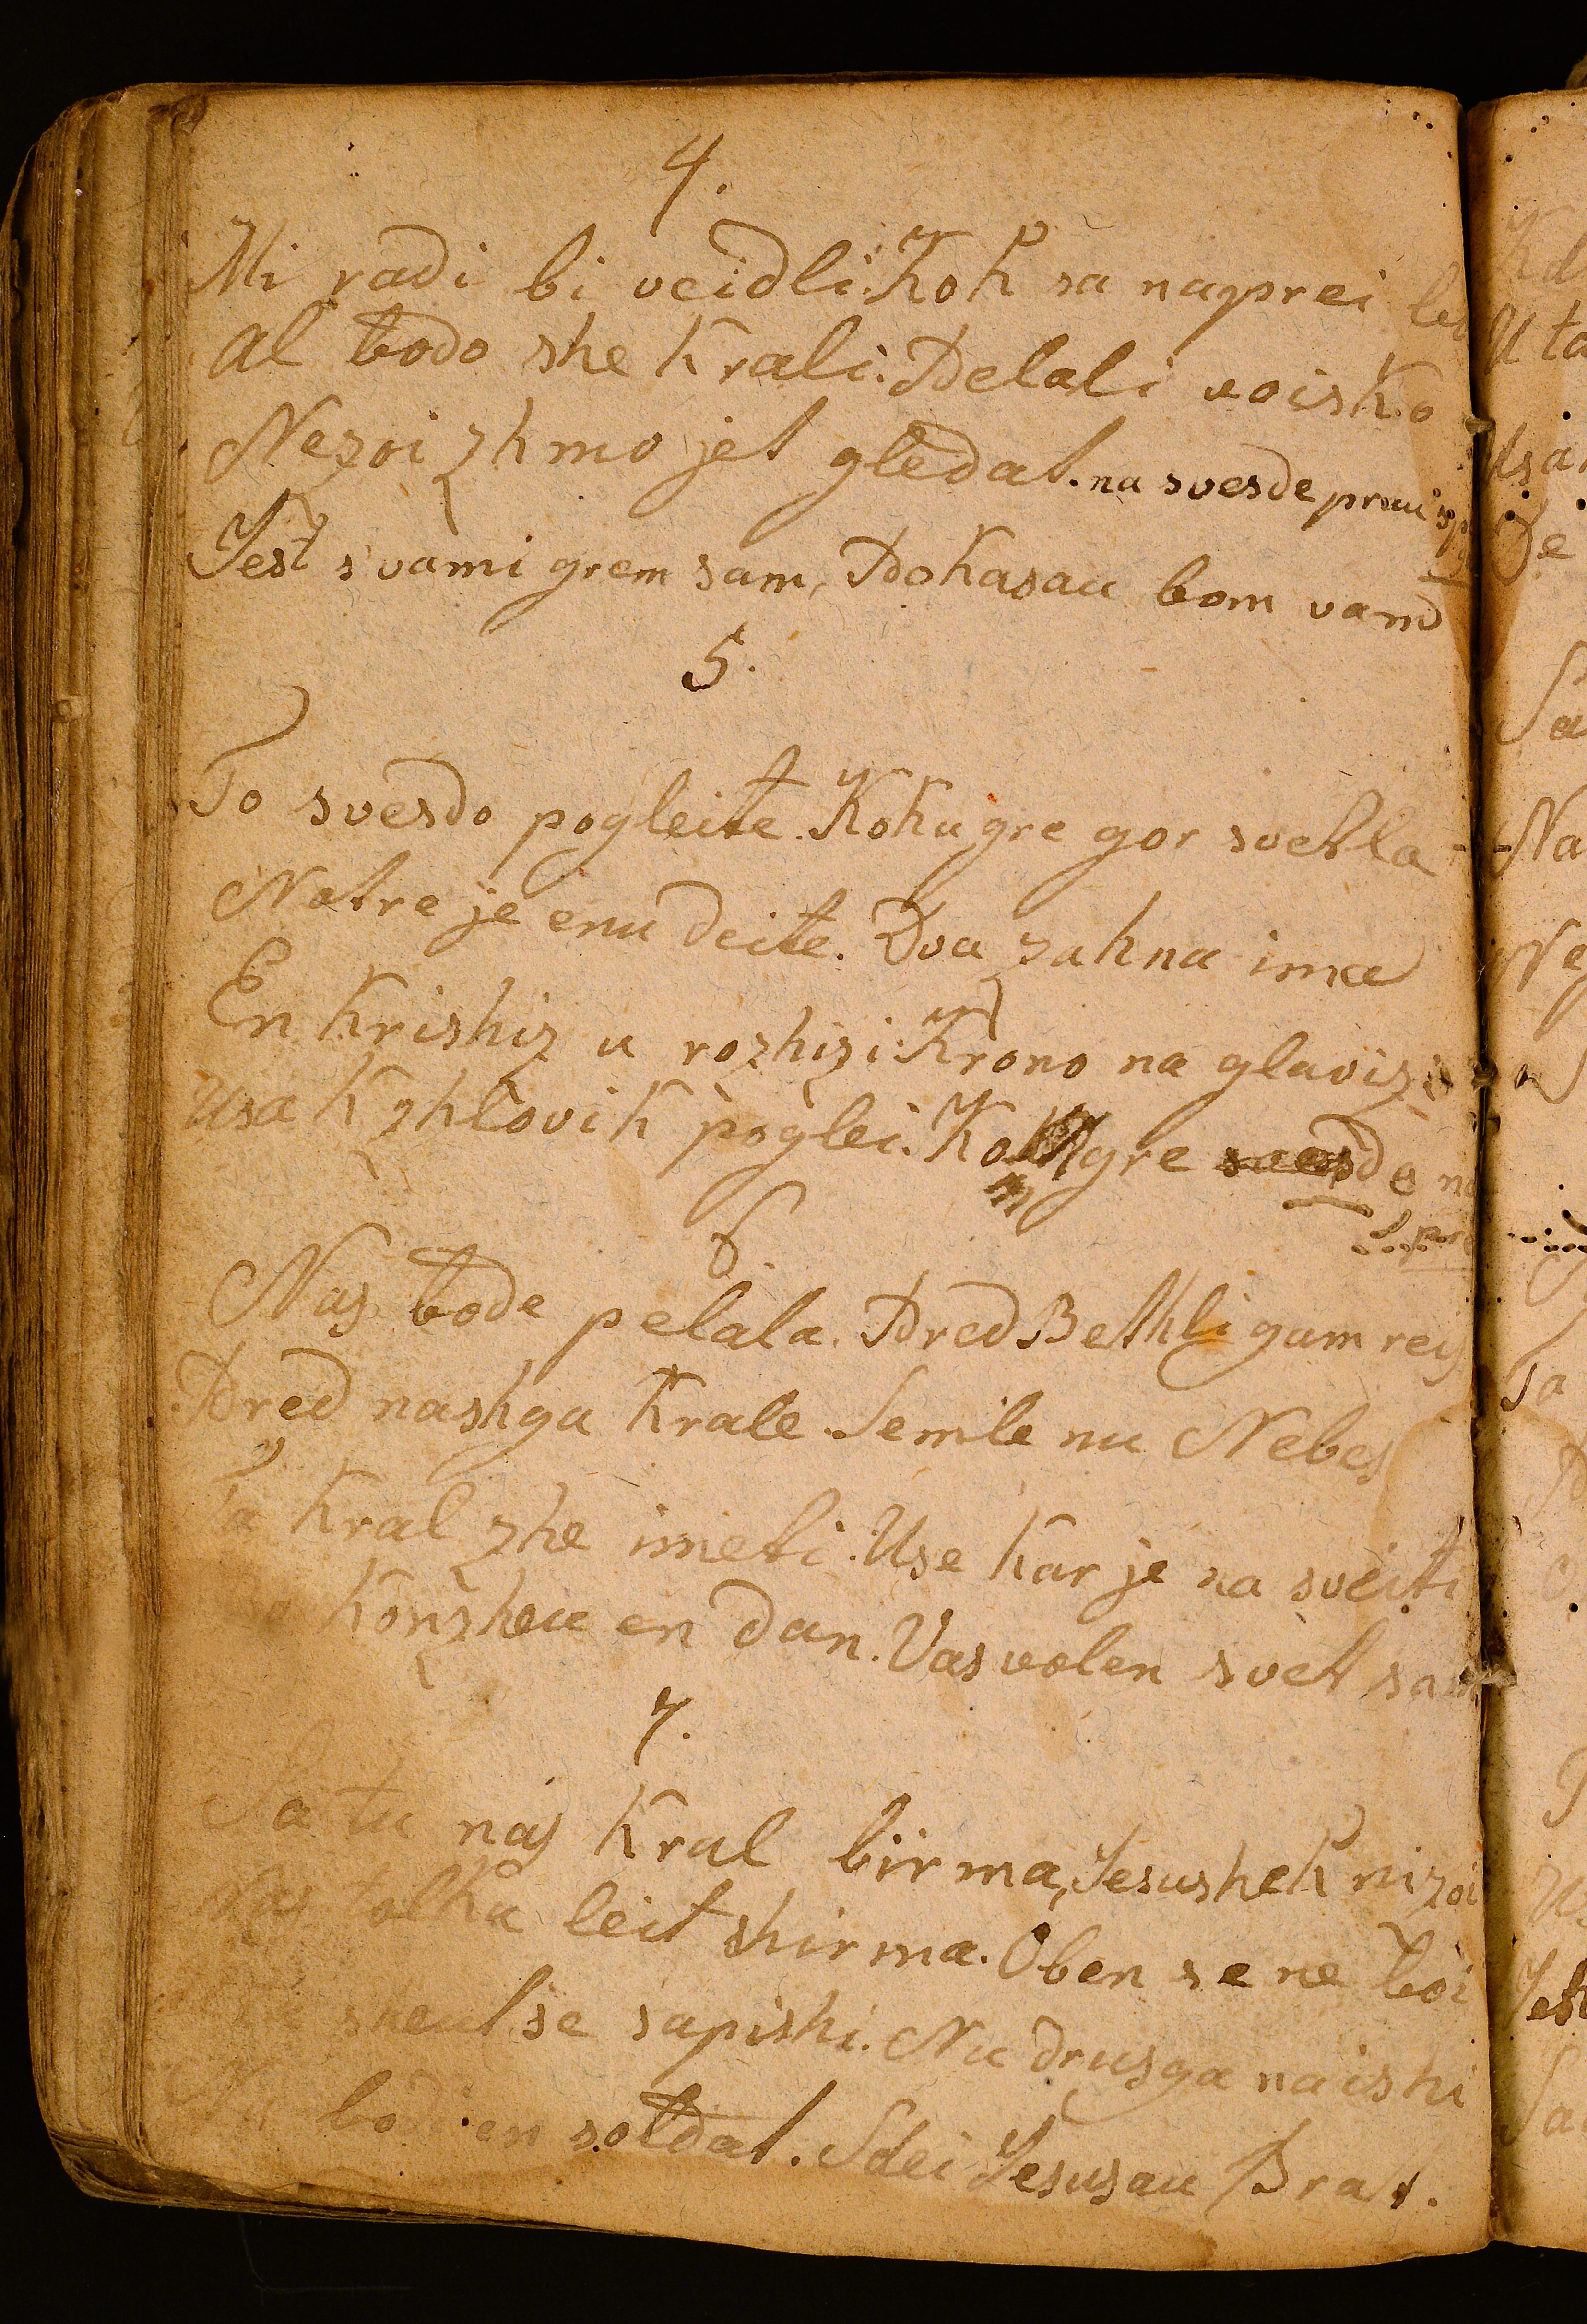 4.
Mi radi bi veidli: Kok sa naprei
Al bodo she Krali: Delali voisko
Nezoi zhmo jet gledat. na svesde prau
Jest s vami grem sam, Pokasau bom vam
5.
To svesdo pogleite. Koku gre gor svetla
Notre je enu deite. Dva zahna ima
En Krishiz u rozhizi: Krono na glaviz
Usak zhlovik poglei. gre svesde
6
Nas bode pelala. Pred Bethligam
Pred nashga Krale. Semle nu Nebes
Kral zhe imeti. Use kar je na sveiti
Konzheu en dan. Vas volen svet
7.
Sa tu nas Kral birma, Jesushek
leit shirma. Oben se ne boi
se sapishi. Nu drusga naishi
bodi en soldat. Sdei Jesusau Brat.